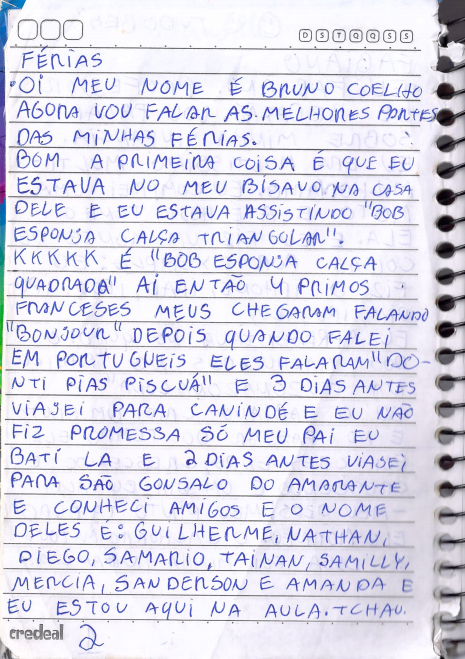 D S T Q Q S S
FÉRIAS
OI MEU NOME É BRUNO COELHO
AGORA VOU FALAR AS MELHORES PARTES
DAS MINHAS FÉRIAS.
BOM A PRIMEIRA COISA É QUE EU
ESTAVA NO MEU BISAVO NA CASA
DELE E EU ESTAVA ASSISTINDO "BOB
ESPONJA CALÇA TRIANGOLAR".
KKKKK É "BOB ESPONJA CALÇA
QUADRADA" AÍ ENTÃO 4 PRIMOS
FRANCESES MEUS CHEGARAM FALANDO
"BONJOUR" DEPOIS QUANDO FALEI
EM PORTUGUEIS ELES FALARAM "DO-
NTI PIAS PISCUÁ" E 3 DIAS ANTES
VIAJEI PARA CANINDÉ E EU NÃO
FIZ PROMESSA SÓ MEU PAI EU
BATÍ LA E 2 DIAS ANTES VIAJEI
PARA SÃO GONSALO DO AMARANTE
E CONHECI AMIGOS E O NOME
DELES É: GUILHERME, NATHAN,
DIEGO, SAMARIO, TAINAN, SAMILLY,
MERCIA, SANDERSON E AMANDA E
EU ESTOU AQUI NA AULA. TCHAU.
credeal 2